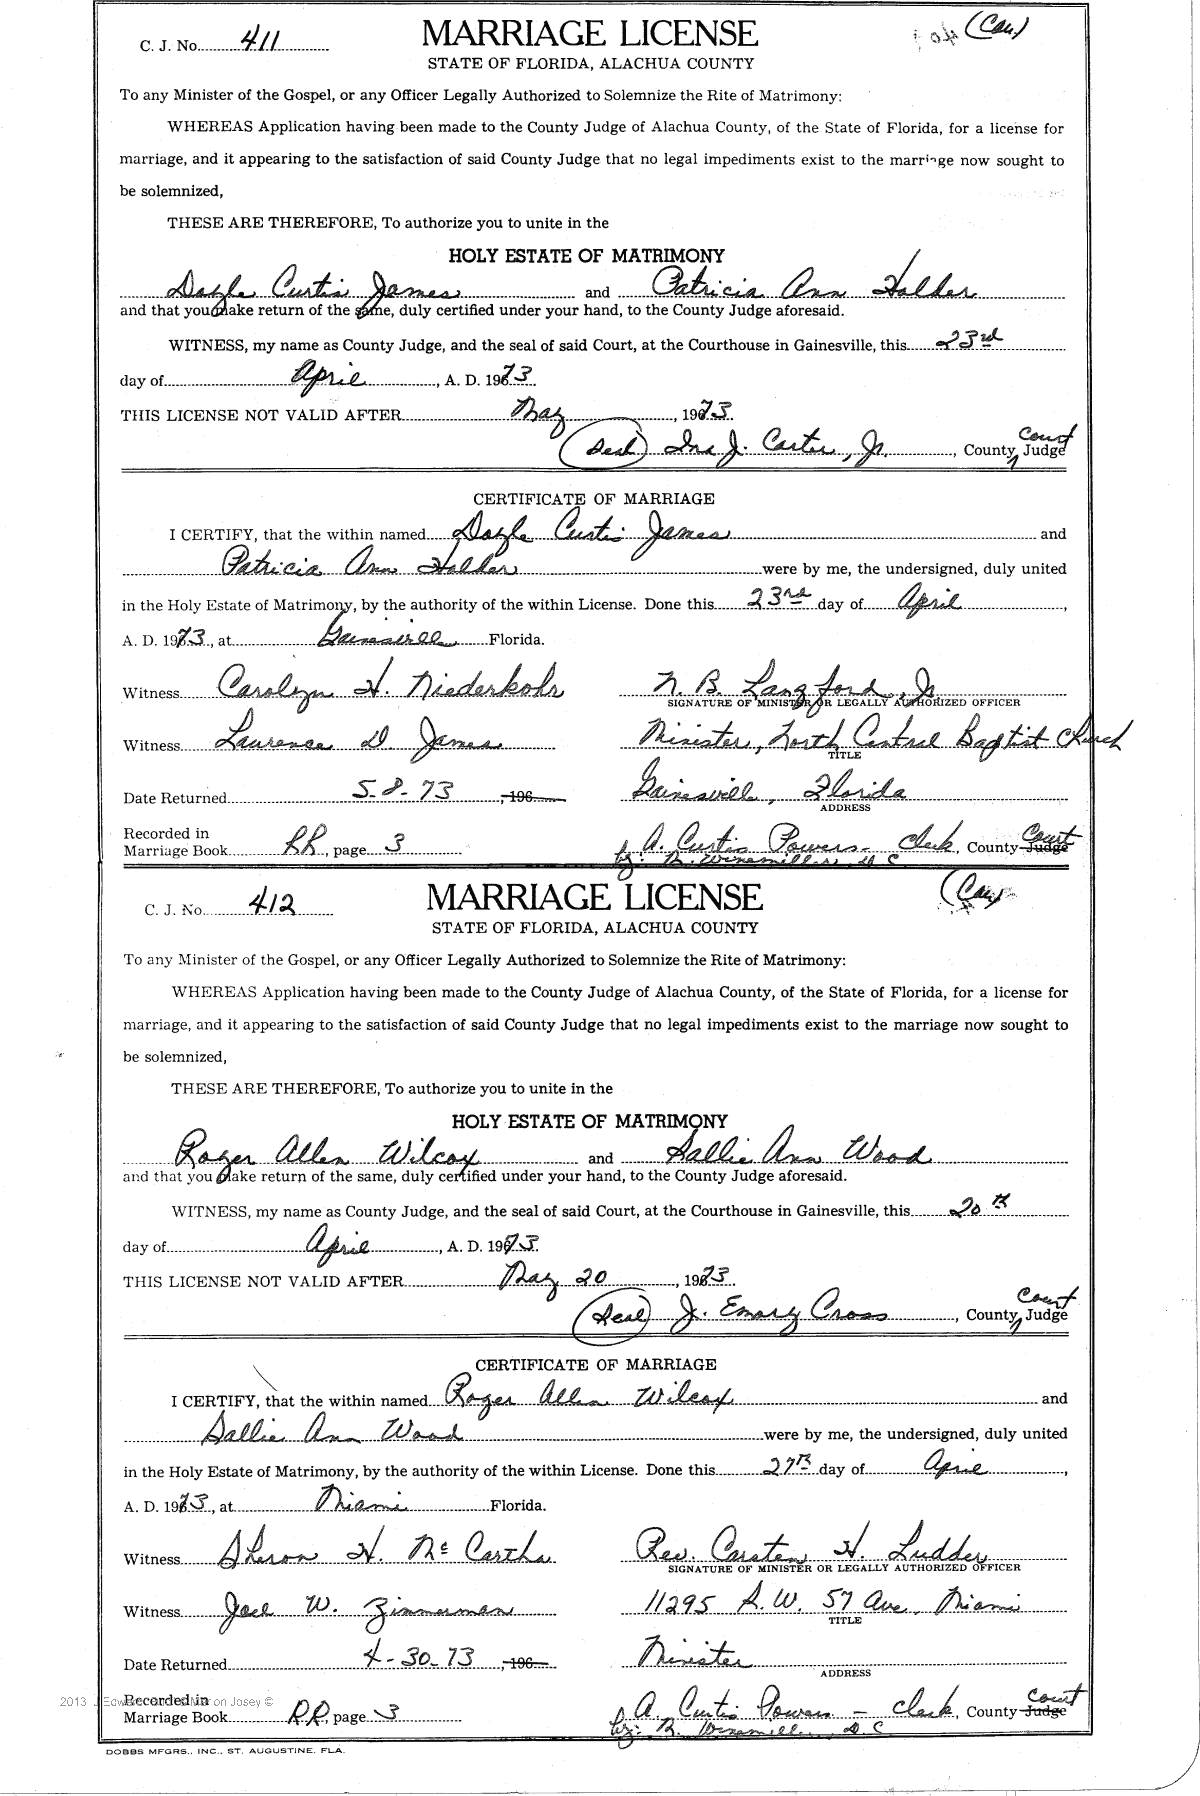 C. J. No. 411 MARRIAGE LICENSE (Cau.)
STATE OF FLORIDA, ALACHUA COUNTY
To any Minister of the Gospel, or any Officer Legally Authorized to Solemnize the Rite of Matrimony:
WHEREAS Application having been made to the County Judge of Alachua County, of the State of Florida, for a license for
marriage, and it appearing to the satisfaction of said County Judge that no legal impediments exist to the marriage now sought to
be solemnized,
THESE ARE THEREFORE, To authorize you to unite in the
HOLY ESTATE OF MATRIMONY
Doyle Curtis James and Patricia Ann Holder
and that you make return of the same, duly certified under your hand, to the County Judge aforesaid.
WITNESS, my name as County Judge, and the seal of said Court, at the Courthouse in Gainesville, this 23rd
day of April, A. D. 1973
THIS LICENSE NOT VALID AFTER May, 1973
(Seal) Ira J. Carter, Jr., County Court Judge
CERTIFICATE OF MARRIAGE
I CERTIFY, that the within named Doyle Curtis James and
Patricia Ann Holder were by me, the undersigned, duly united
in the Holy Estate of Matrimony, by the authority of the within License. Done this 23rd day of April,
A. D. 1973, at Gainesville Florida.
Witness Carolyn H. Niederkohr N. B. Langford, Jr.
SIGNATURE OF MINISTER OR LEGALLY AUTHORIZED OFFICER
Witness Laurence D James Minister, North Central Baptist Church
TITLE
Date Returned 5-8-73, 196 Gainesville, Florida
ADDRESS
Recorded in
Marriage Book RR, page 3 A. Curtis Powers - Clerk, County Court Judge
by: D C
C. J. No. 412 MARRIAGE LICENSE (Cau)
STATE OF FLORIDA, ALACHUA COUNTY
To any Minister of the Gospel, or any Officer Legally Authorized to Solemnize the Rite of Matrimony:
WHEREAS Application having been made to the County Judge of Alachua County, of the State of Florida, for a license for
marriage, and it appearing to the satisfaction of said County Judge that no legal impediments exist to the marriage now sought to
be solemnized,
THESE ARE THEREFORE, To authorize you to unite in the
HOLY ESTATE OF MATRIMONY
Roger Allen Wilcox and Sallie Ann Wood
and that you make return of the same, duly certified under your hand, to the County Judge aforesaid.
WITNESS, my name as County Judge, and the seal of said Court, at the Courthouse in Gainesville, this 20th
day of April, A. D. 1973
THIS LICENSE NOT VALID AFTER May 20, 1973
(Seal) J. Emory Cross, County Court Judge
CERTIFICATE OF MARRIAGE
I CERTIFY, that the within named Roger Allen Wilcox and
Sallie Ann Wood were by me, the undersigned, duly united
in the Holy Estate of Matrimony, by the authority of the within License. Done this 27th day of April,
A. D. 1973, at Miami Florida.
Witness Sheron H. McCartha Rev. Carsten H. Ludder
SIGNATURE OF MINISTER OR LEGALLY AUTHORIZED OFFICER
Witness Joel W. Zimmerman 11295 S.W. 57 Ave. Miami
TITLE
Date Returned 4-30-73, 196 Minister
ADDRESS
Recorded in
Marriage Book RR, page 3 A. Curtis Powers - Clerk, County Court Judge
by: D C
DOBBS MFGRS., INC., ST. AUGUSTINE, FLA.